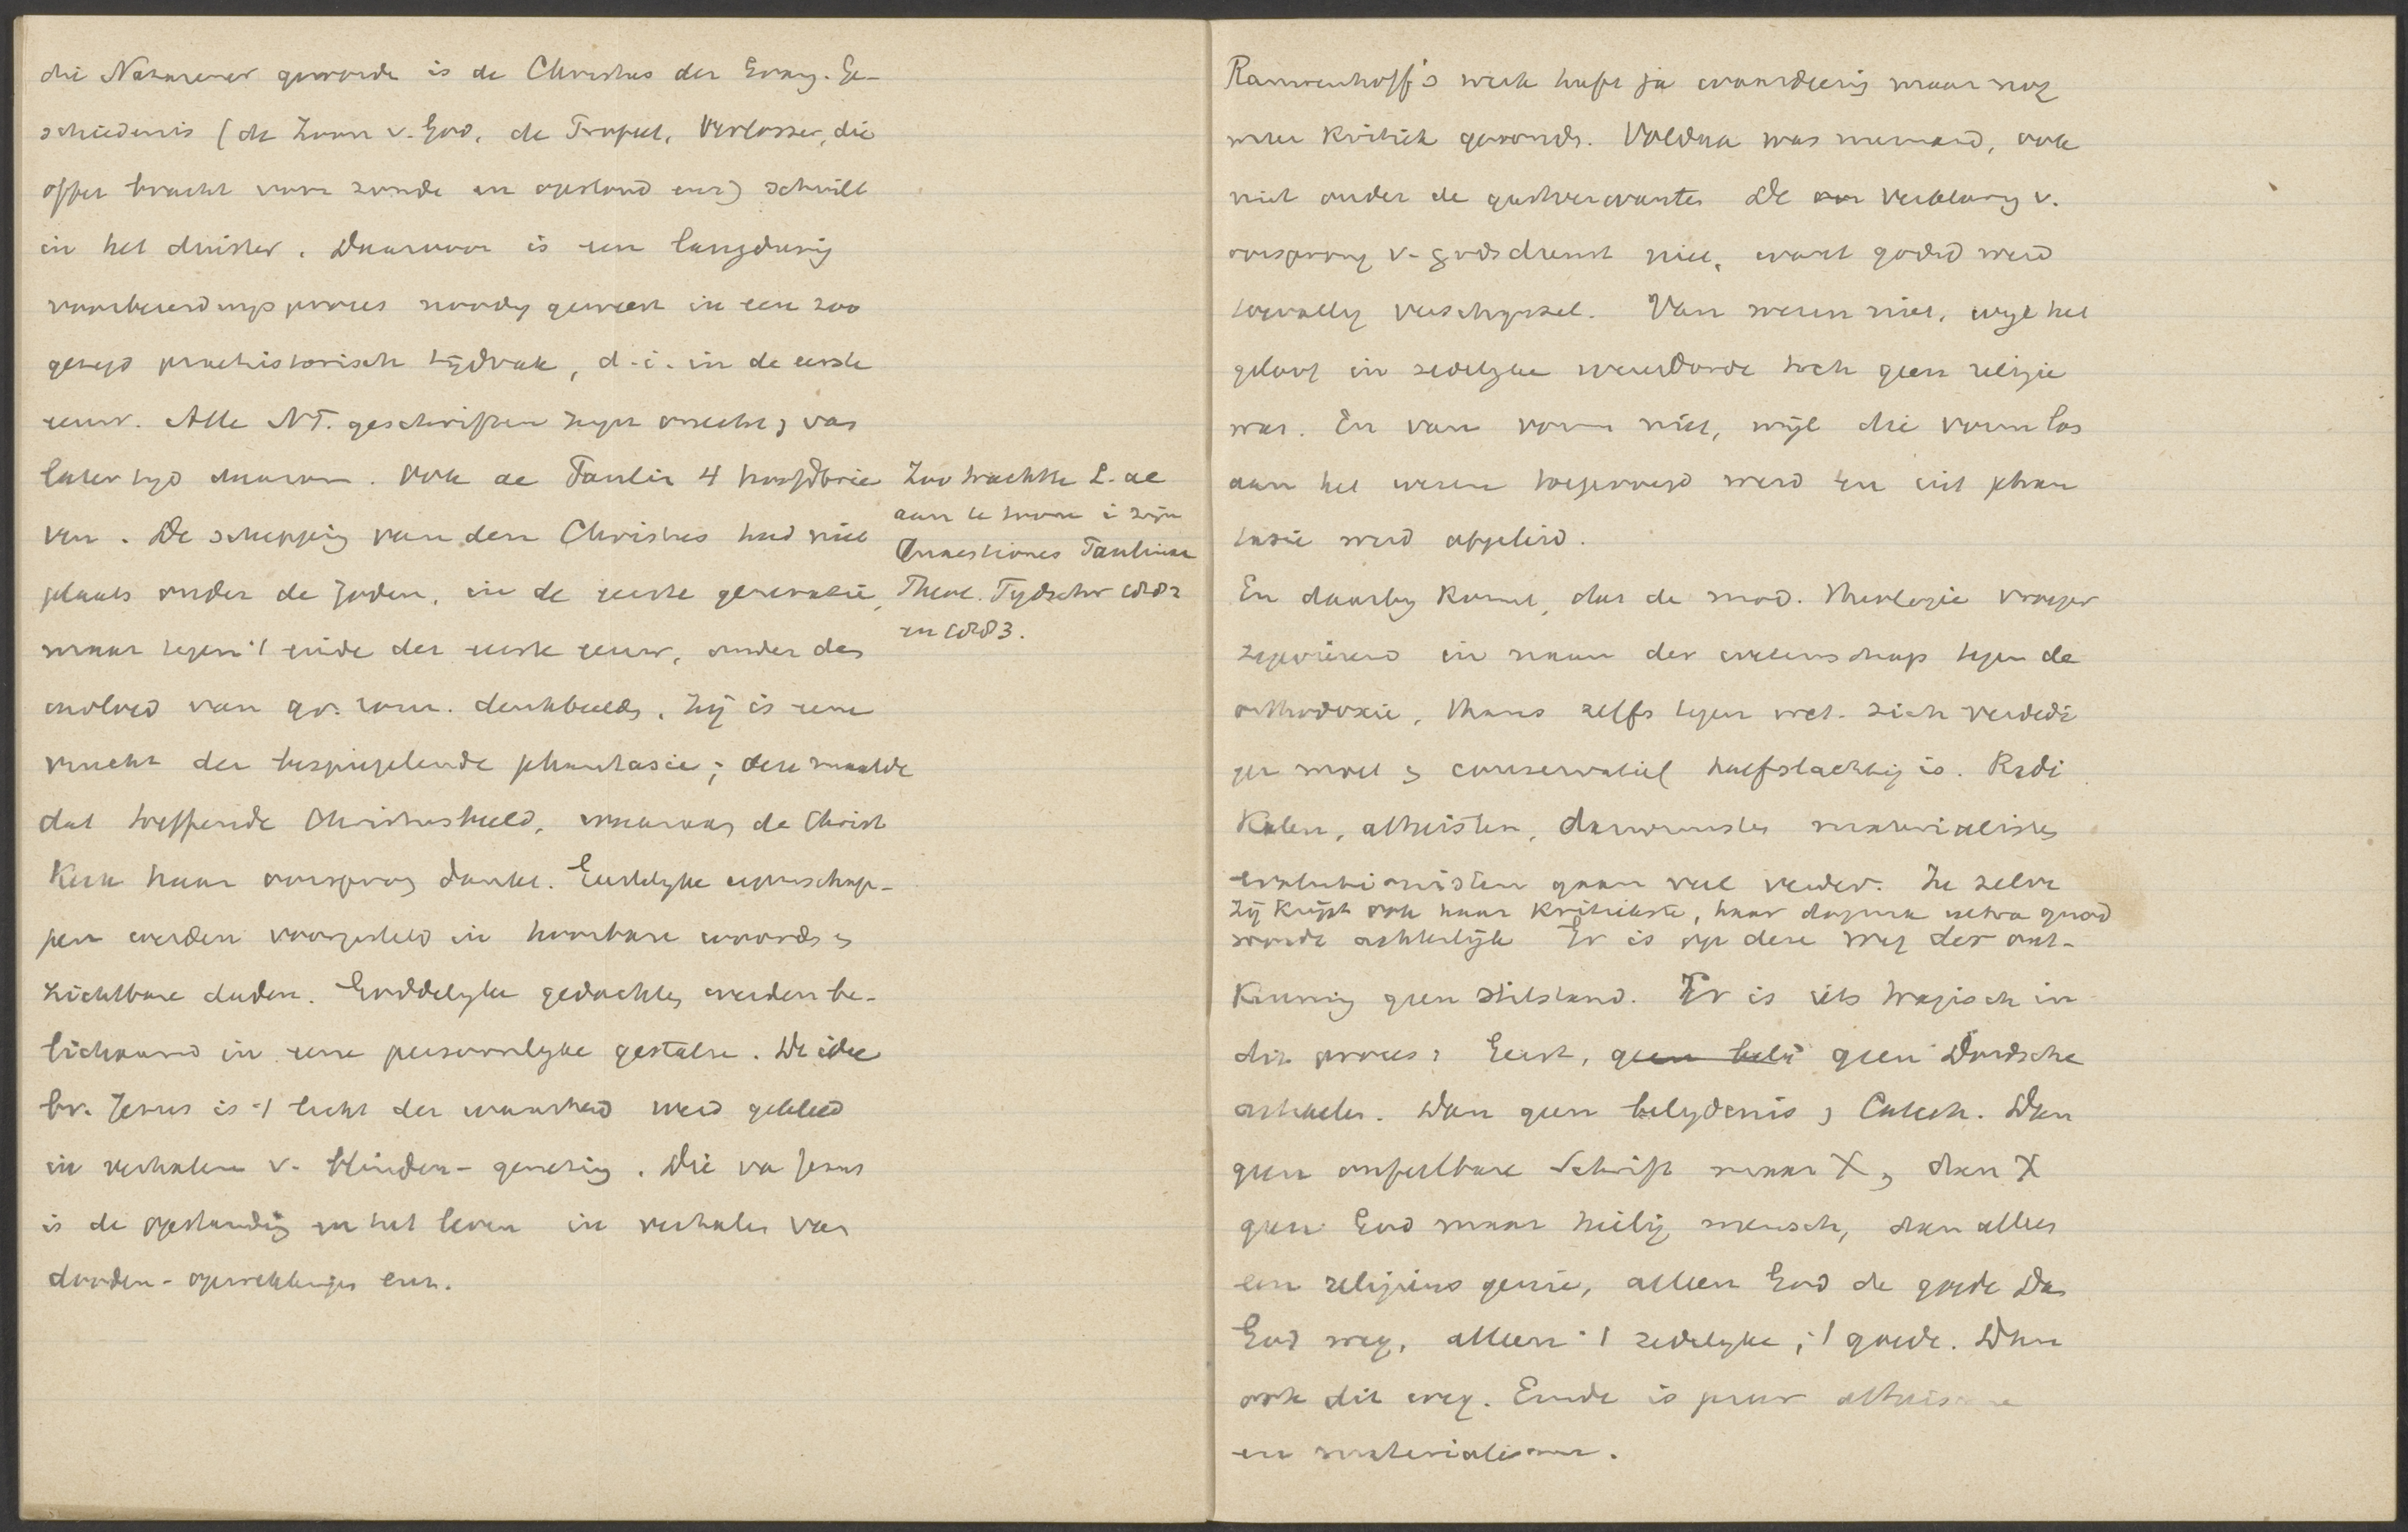 die Nazarener geworde is de Christus der Evang. Ge-
schiedenis (de Zoon v. God, de Profeet, Verlosser, die
offer bracht voor zonde en opstond enz) schuilt
in het duister. Daarvoor is een langdurig
voorbereidingsproces noodig geweest in een zoo
gezegd praehistorisch tijdvak, d.i. in de eerste
eeuw. Alle NT. geschriften zijn onecht, van
later tijd daarom. Ook de Paulin 4 hoofdbrie
ven. De schepping van den Christus had niet
plaats onder de Joden, in de eerste generatie,
maar tegen 't einde der eerste eeuw, onder den
invloed van gr. rom. denkbeeld. Zij is eene
vrucht der bespiegelende phantasie; deze maalde
dat treffende Christusbeeld, waaraan de Christ
Kerk haar oorsprong dankt. Goddelyke eigenschap-
pen werden voorgesteld in hoorbare woorden en
zichtbare daden. Goddelyke gedachten werden be-
lichaamd in eene persoonlyke gestalte. De idee
bv. Jezus is 't licht der waarheid werd gekleed
in verhalen v. blinden-genezing. Die van Jezus
is de opstanding en het leven in verhalen van
dooden-opwekkingen enz.
Zoo trachtte L. ae
aan te toonen i zijn
Quaestiones Paulinae
Theol. Tydschr 1882
en 1883.
Rauwenhoff's werk heeft ja waardeering maar nog
meer kritiek gevonden. Voldaan was niemand, ook
niet onder de geestverwanten. De verklaring v.
oorsprong v. godsdienst niet, want godsd werd
toevallig verschynsel. Van wezen niet, wyl het
geloof in zedelyke wereldorde toch geen religie
was. En van vorm niet, wijl die vorm los
aan het wezen toegevoegd werd en uit phan
tasie werd afgeleid.
En daarby komt, dat de mod. theologie vroeger
zegevierend in naam der wetenschap tegen de
orthodoxie, thans zelfs tegen wet. zich verdedi
gen moet en conservatief halfslachtig is. Radi
kalen, atheisten, darwinisten materialisten
evolutionisten gaan veel verder. Ze zelve
Zij krijgt ook haar kritikaste, haar dogma extra quod
wordt achterlijk Er is op deze weg der ont-
kenning geen stilstand. Er is iets tragisch in
dit proces: Eerst, geen beli geen Dordsche
artikelen. Dan geen belydenis en Catech. Dan
geen onfeilbare Schrift maar X, dan X
geen God maar heilig mensch, dan alleen
een religieus genie, alleen God de goede Dan
God weg, alleen 't zedelyke, 't goede. Dan
ook dit weg. Einde is puur atheisme
en materialisme.